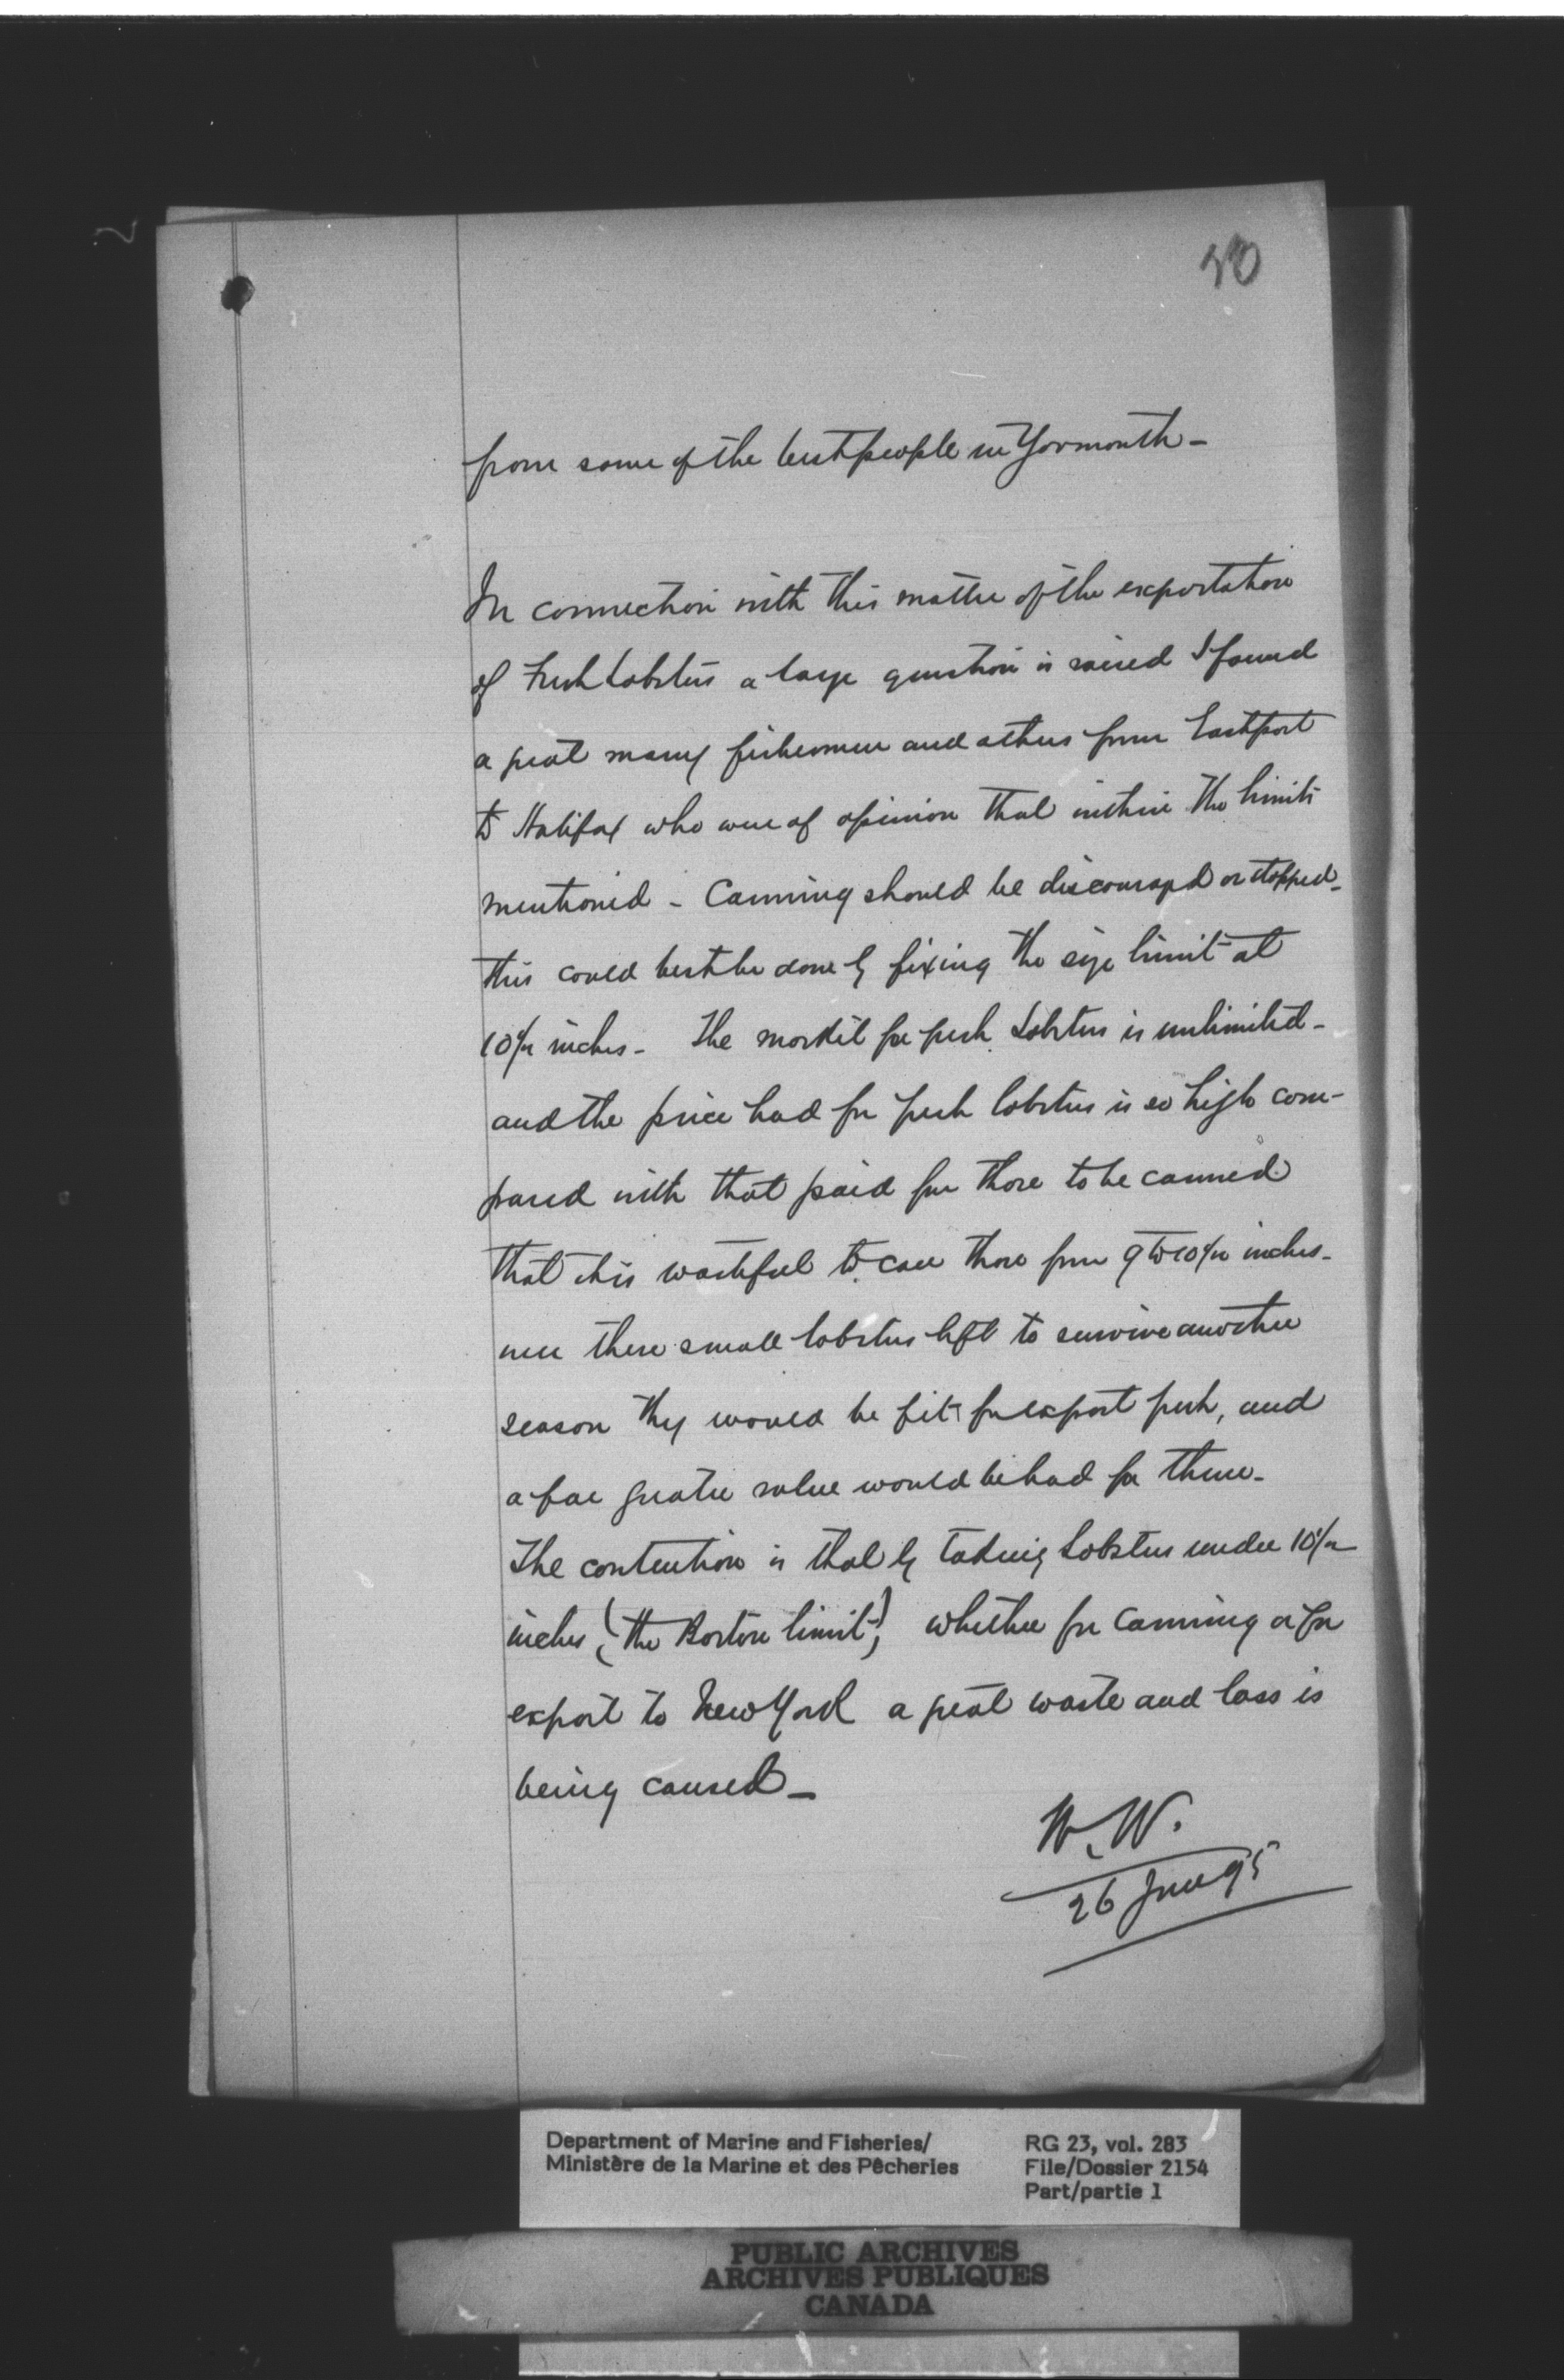 30
from some of the best people in Yarmouth -
In connection with this matter of the exportation
of Fresh Lobsters a large question is raised I found
a great many fishermen and others from Eastport
to Halifax who were of opinion that within the limits
mentioned - Canning should be discouraged or stopped -
this could best be done by fixing the size limit at
10½ inches - The market for fresh Lobsters is unlimited -
and the price had for fresh lobsters is so high com-
pared with that paid for those to be canned
that it is wasteful to can those from 9 to 10½ inches -
were these small lobsters left to survive another
season they would be fit for export fresh, and
a far greater value would be had for them -
The contention is that by taking Lobsters under 10½
inches (the Boston limit) whether for Canning or for
export to New York a great waste and loss is
being caused -
W. W.
26 June 95
Department of Marine and Fisheries/
Ministère de la Marine et des Pêcheries
RG 23, vol. 283
File/Dossier 2154
Part/partie 1
PUBLIC ARCHIVES
ARCHIVES PUBLIQUES
CANADA